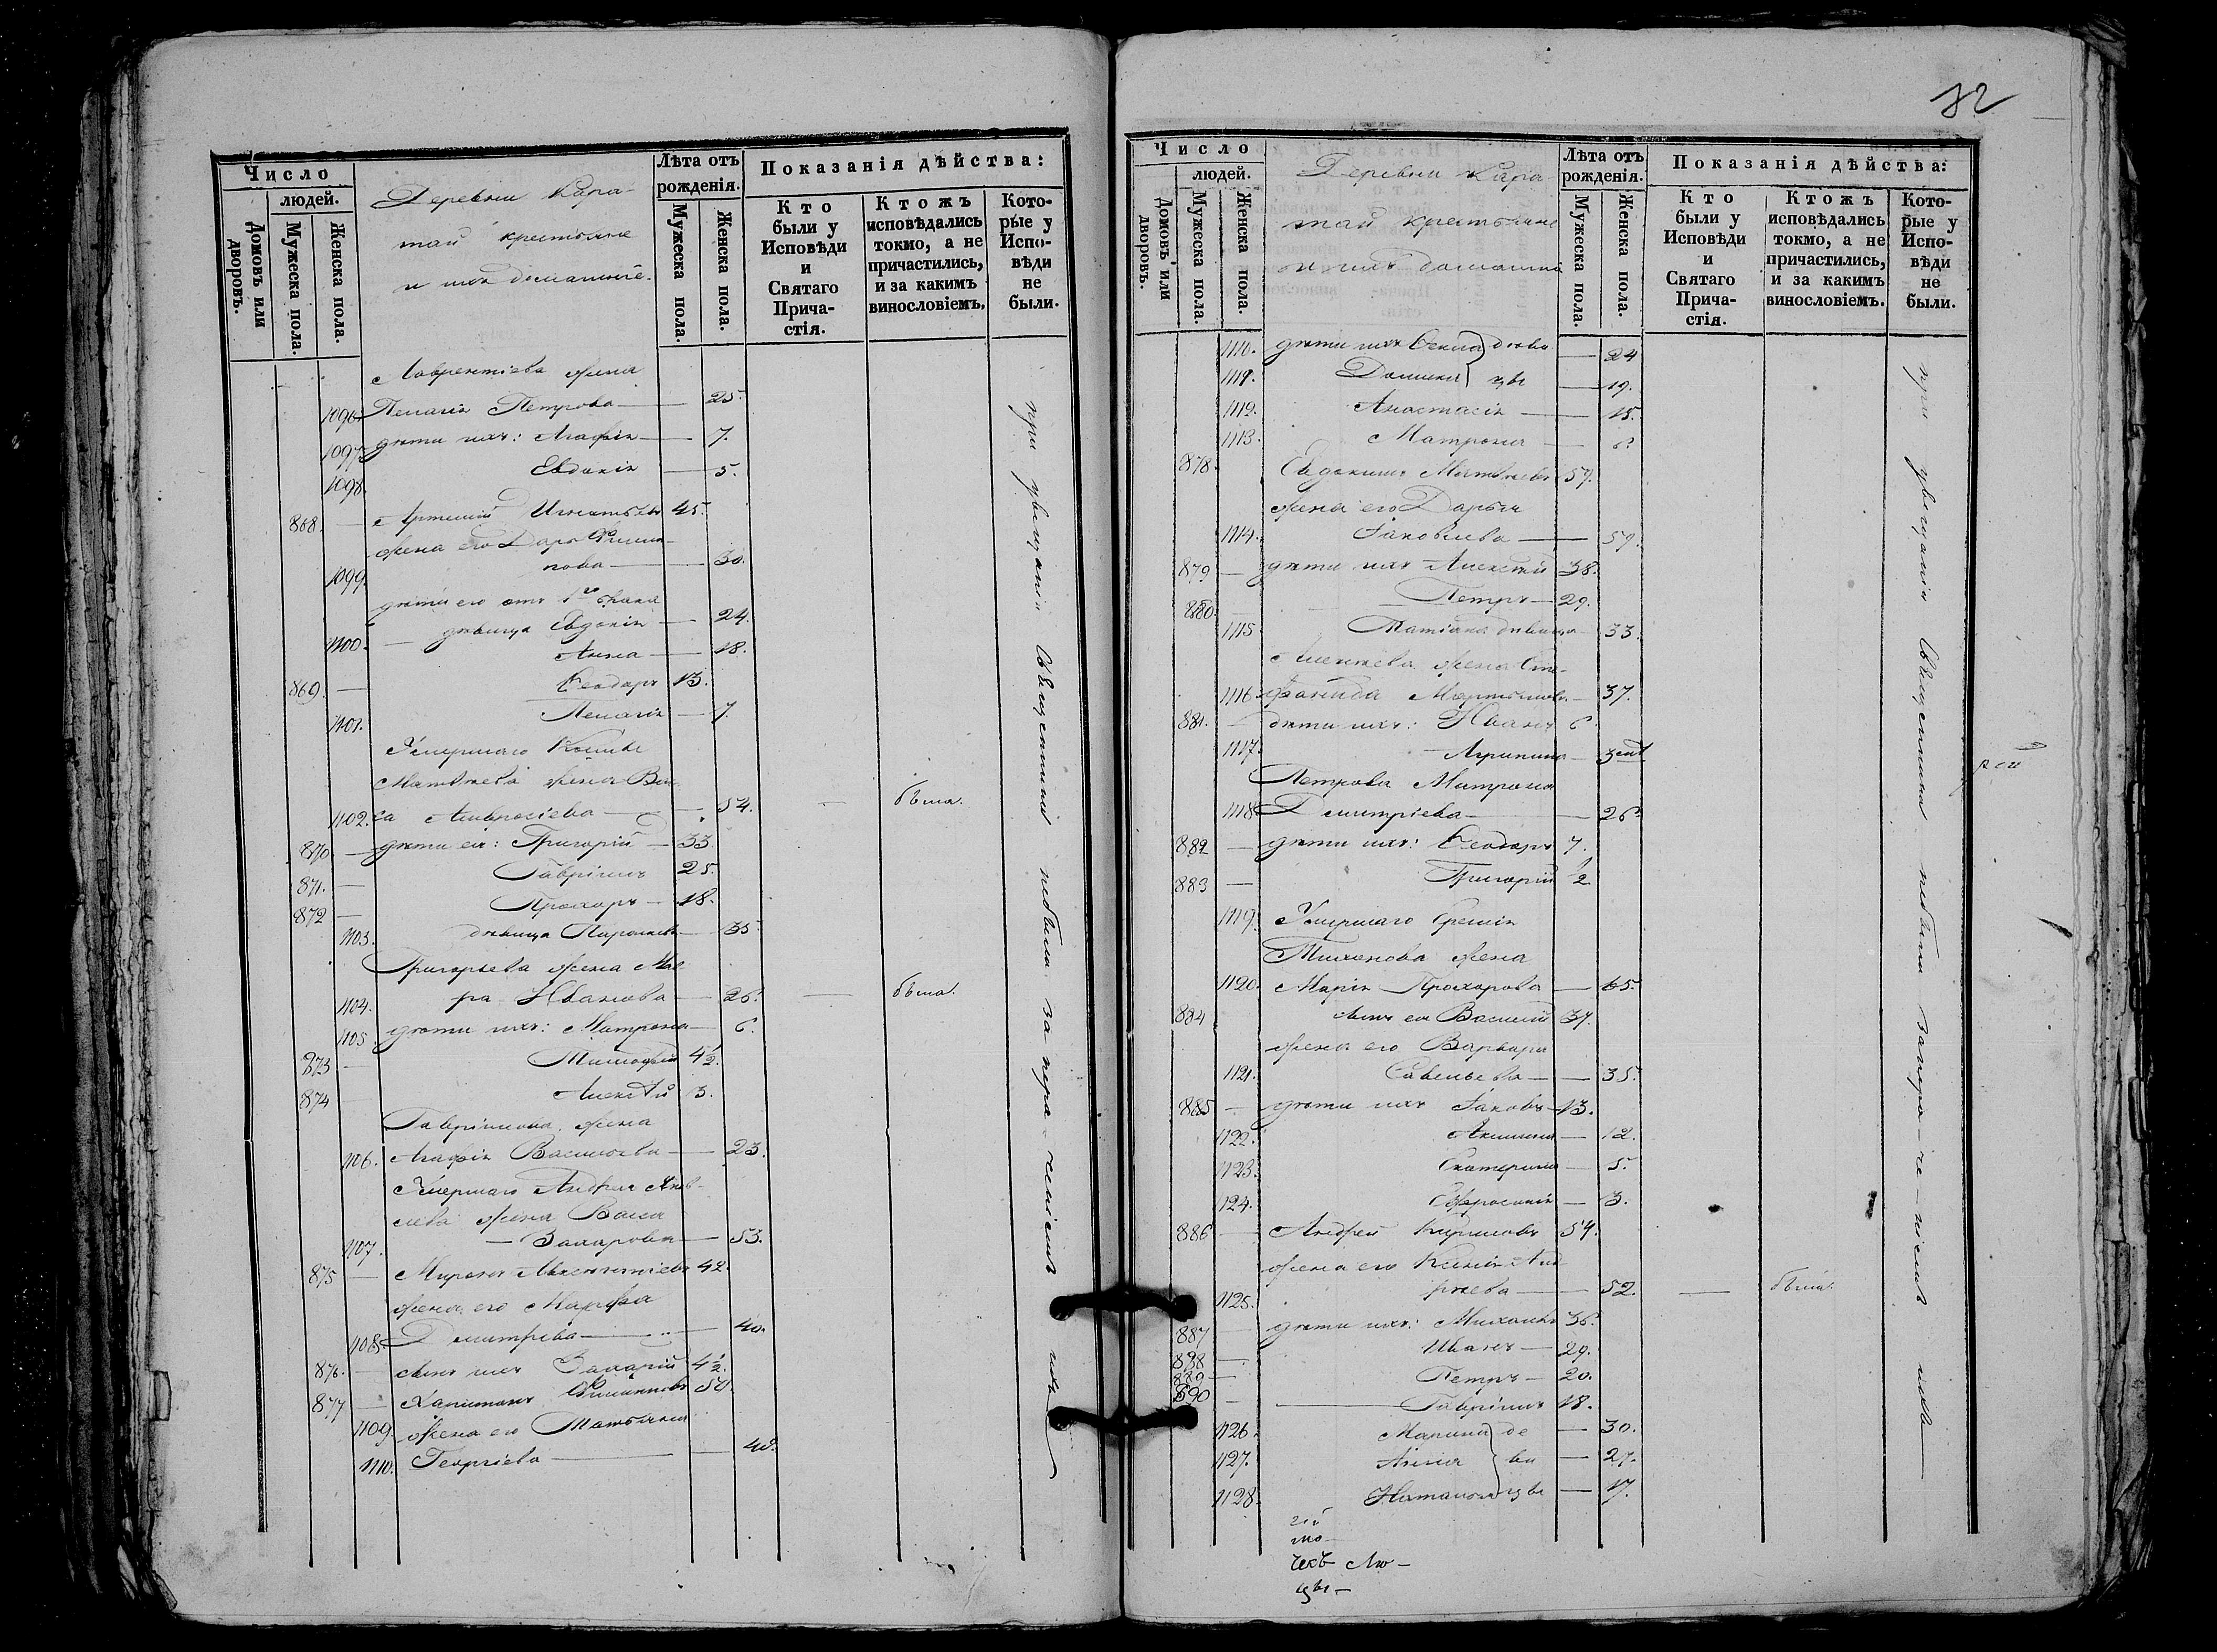 Число
людей.
Домовъ или дворовъ.
Мужеска пола.
Женска пола.
Деревни Кара-
тай крестьяне
и ихъ домашніе.
Лѣта отъ рожденія.
Мужеска пола.
Женска пола.
Показанія дѣйства:
Кто были у Исповѣди и Святаго Прича-стія.
Ктожъ исповѣдались токмо, а не причастились, и за какимъ винословіемъ.
Кото-рые у Испо-вѣди не были.
Лаврентіева жена
1096. Пелагія Петрова — 25.
1097. дѣти ихъ: Агафія — 7.
1098. Евдокія — 5.
868. — Артемій Игнатьевъ 45.
жена его Дарья Филип-
1099. пова — 30.
дѣти его отъ 1го брака
1100. — дѣвица Евдокія — 24.
Анна — 18.
869. — Ѳеодоръ 13.
1101. Пелагія — 7.
Умершаго Козьмы
Матвѣева жена Ва-
1102. са Амвросіева — 54. — была.
870. — дѣти ея: Григорій — 33.
871. — Гавріилъ 25.
872 — Прохоръ — 18.
1103. дѣвица Парасковья — 35.
Григорьева жена Мав-
1104. ра Иванова — 26. — была.
1105. дѣти ихъ: Матрона — 6.
873 — Тимофей 4½.
874 — Алексѣй 3.
Гавріилова жена
1106. Агафія Васильева — 23.
Умершаго Андрея Яков-
лева жена Васса
1107. — Захарова — 53.
875 — Миронъ 42.
жена его Марфа
1108. Дмитріева — 40.
876. — сынъ ихъ Захарій 4½.
877 — Капитонъ Филипповъ 50.
1109. жена его Татьяна
1110. Георгіева — 48.
при увещаніи Священникъ небыли за нера-ченіемъ ихъ
32
Число
людей.
Домовъ или дворовъ.
Мужеска пола.
Женска пола.
Деревни Кара-
тай крестьяне
и ихъ домашніе
Лѣта отъ рожденія.
Мужеска пола.
Женска пола.
Показанія дѣйства:
Кто были у Исповѣди и Святаго Прича-стія.
Ктожъ исповѣдались токмо, а не причастились, и за какимъ винословіемъ.
Кото-рые у Испо-вѣди не были.
1110. дѣти ихъ Ѳекла дѣви — 24
1111. Домника цы — 19.
1112. Анастасія — 15.
1113. Матрона — 6.
878. Евдокимъ Матвѣевъ 59.
жена его Дарья
1114. Іаковлева — 59.
879 — дѣти ихъ Алексѣй 38.
880. — Петръ — 29.
1115. Татіана дѣвица — 33.
Алексѣева жена Сте-
1116. фанида Мартынова — 37.
881. — дѣти ихъ: Иванъ 6.
1117. Агрипина — 3
Петрова Матрона
1118. Дмитріева — 26.
882 — дѣти ихъ: Ѳеодоръ 7.
883 — Григорій ½
1119. Умершаго
Тихонова жена
1120. Марія Прохорова — 65.
884 сынъ ея Василій 37.
жена его Варвара
1121. Савельева — 35.
885 — дѣти ихъ Іаковъ — 13.
1122. Акилина — 12.
1123. Екатерина — 5.
1124. Ефросинія — 3.
886 — Андрей Кириловъ 54.
жена его Ксенія Анд-
1125. рѣева — 52. — была.
887 — дѣти ихъ: Михаилъ 36.
888 — Иванъ — 29.
889 — Петръ — 20.
890 — Гавріилъ 18.
1126. Марина де — 30.
1127. Анна ви — 27.
1128. Наталія цы — 17.
при увещаніи Священника небыли за нера-че-ніемъ ихъ